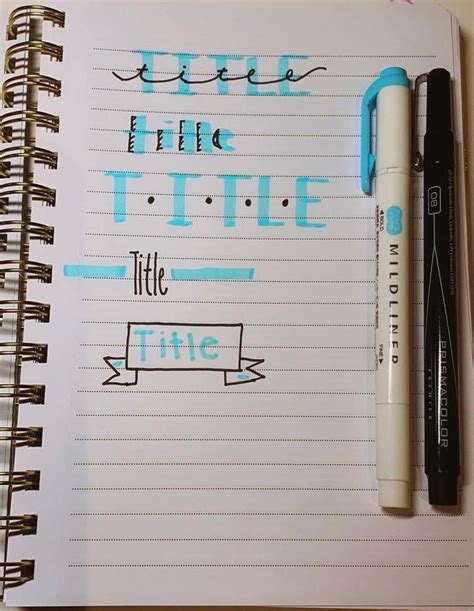 TITLE
title
title
T·I·T·L·E
Title
Title
MILDLINER
BOLD
FINE
PRISMACOLOR
PREMIER
08